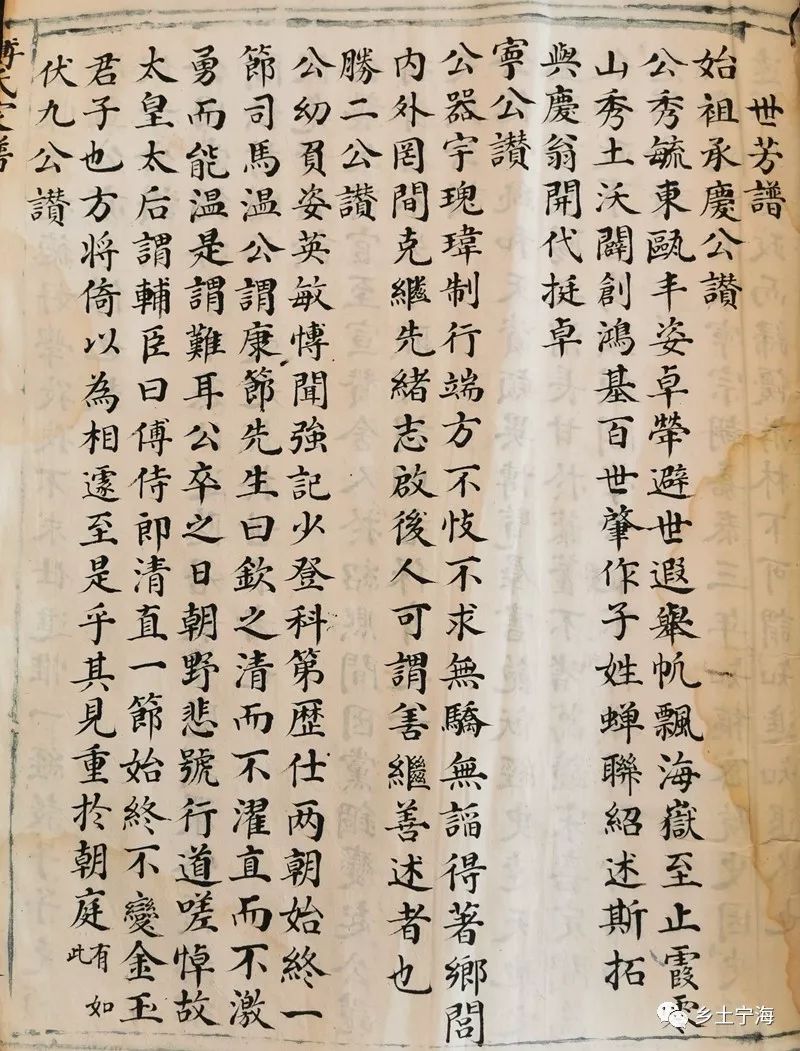 世芳譜
始祖承慶公讃
公秀毓東甌丰姿卓犖避世遐舉帆飄海嶽至止霞雲
山秀土沃闢創鴻基百世肇作子姓蝉聯紹述斯拓
與慶翁開代挺卓
寧公讃
公器宇瑰瑋制行端方不忮不求無驕無謟得著鄉閭
内外罔間克繼先緒志啟後人可謂善繼善述者也
勝二公讃
公幼負姿英敏博聞強記少登科第歷仕两朝始終一
節司馬温公謂康節先生曰欽之清而不濯直而不激
勇而能温是謂難耳公卒之日朝野悲號行道嗟悼故
太皇太后謂輔臣曰傅侍郎清直一節始終不變金玉
君子也方将倚以為相遽至是乎其見重於朝庭有如此
伏九公讃
乡土宁海